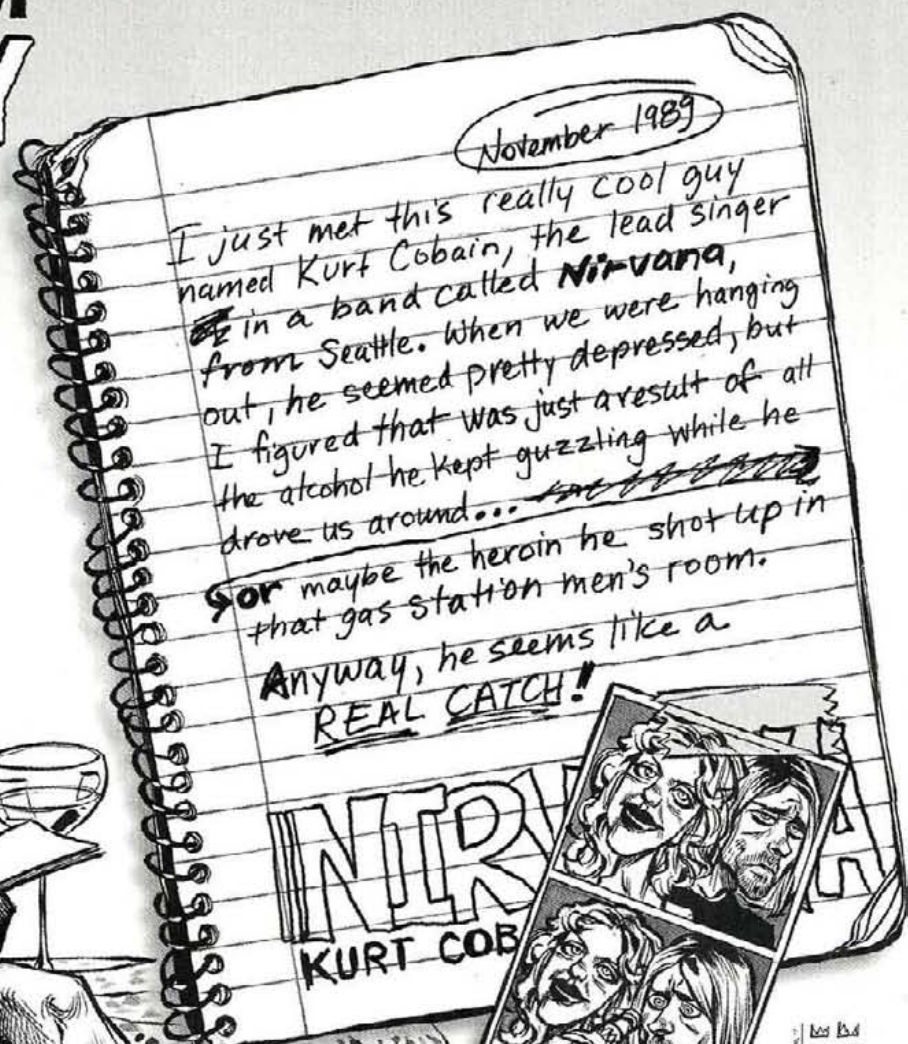 November 1989
I just met this really cool guy
named Kurt Cobain, the lead singer
in a band called Nirvana,
from Seattle. When we were hanging
out, he seemed pretty depressed, but
I figured that was just a result of all
the alcohol he kept guzzling while he
drove us around...
or maybe the heroin he shot up in
that gas station men's room.
Anyway, he seems like a
REAL CATCH!
NIRV A
KURT COB